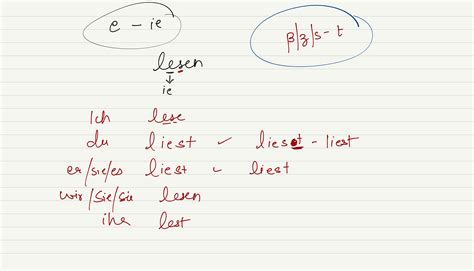 e - ie
ß/z/s - t
lesen
↓
ie
Ich lese
du liest ✓ liesst - liest
er/sie/es liest ✓ liest
wir/Sie/sie lesen
ihr lest